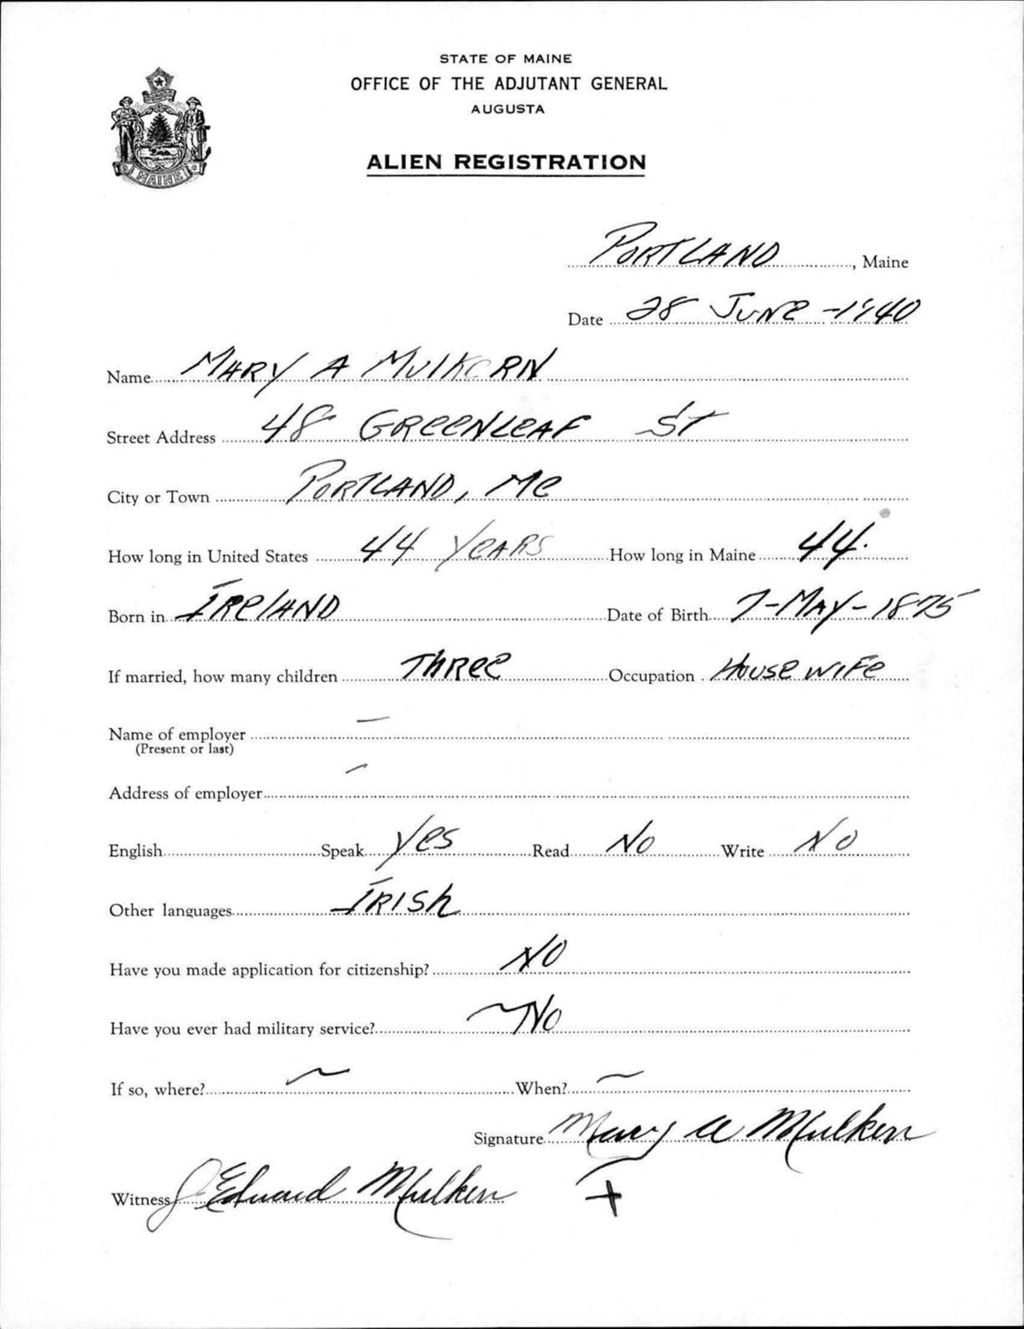 STATE OF MAINE
OFFICE OF THE ADJUTANT GENERAL
AUGUSTA
MAINE
ALIEN REGISTRATION
PORTLAND, Maine
Date 28 June - 1940
Name MARY A
Street Address 48 Greenleaf St
City or Town PORTLAND, Me
How long in United States 44 Years How long in Maine 44.
Born in Ireland Date of Birth 7-May-1875
If married, how many children Three Occupation Housewife
Name of employer —
(Present or last)
Address of employer —
English Speak Yes Read No Write No
Other languages Irish
Have you made application for citizenship? No
Have you ever had military service? No
If so, where? ~ When? ~
Signature Mary A Mulkern
Witness J Edward Mulkern +